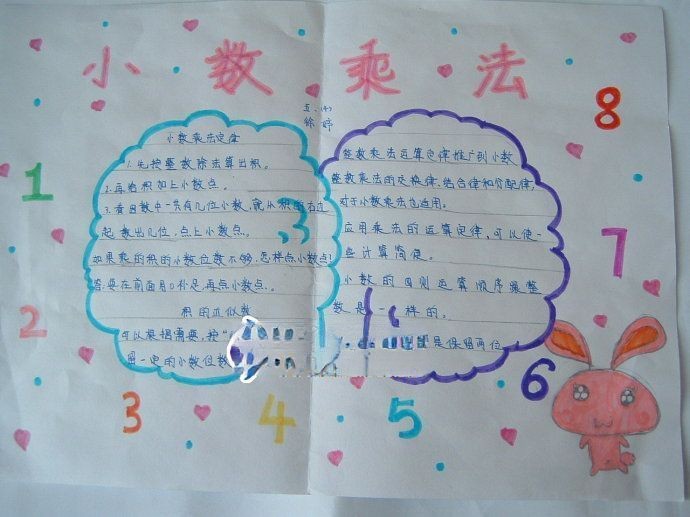 小数乘法
五、(4)
徐婷
小数乘法定律
1.先按整数除法算出积。
2.再给积加上小数点。
3.看因数中一共有几位小数,就从积的右边
起数出几位,点上小数点。
如果乘的积的小数位数不够,怎样点小数点?
答:要在前面用0补足,再点小数点。
积的近似数
可以根据需要,按“
留一定的小数位数
整数乘法运算定律推广到小数
整数乘法的交换律、结合律和分配律,
对于小数乘法也适用。
应用乘法的运算定律,可以使一
些计算简便。
小数的四则运算顺序跟整
数是一样的。
是保留两位
1
2
3
4
5
6
7
8